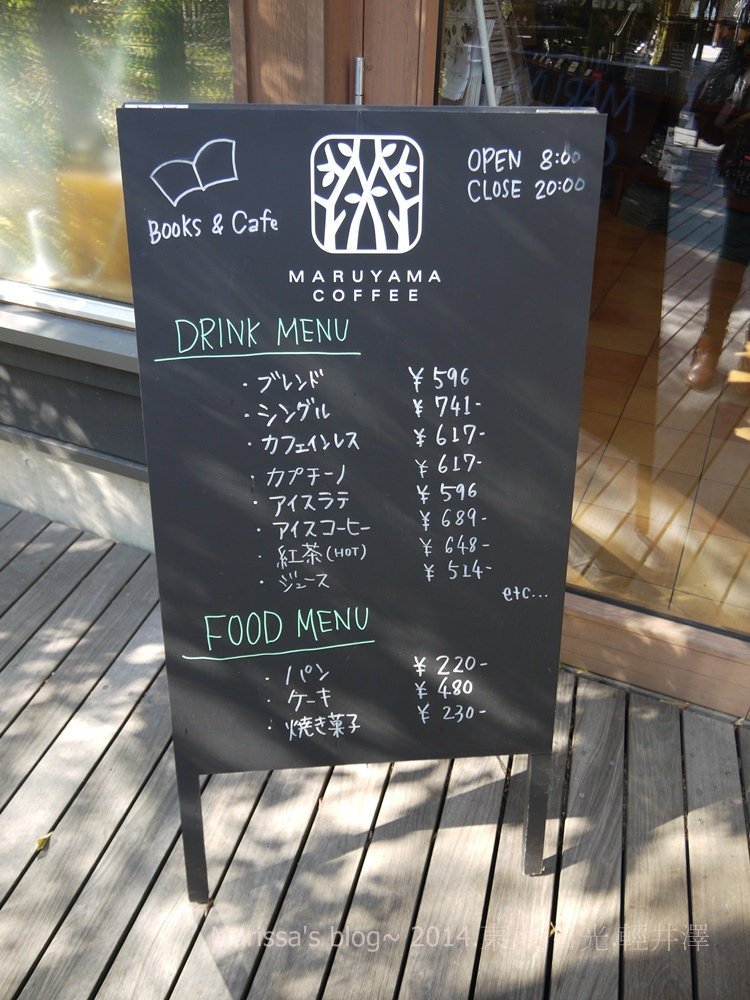 Books & Cafe
MARUYAMA
COFFEE
OPEN 8:00
CLOSE 20:00
DRINK MENU
・ブレンド ¥596
・シングル ¥741-
・カフェインレス ¥617-
・カプチーノ ¥617-
・アイスラテ ¥596
・アイスコーヒー ¥689-
・紅茶(HOT) ¥648-
・ジュース ¥514-
etc...
FOOD MENU
・パン ¥220-
・ケーキ ¥480
・焼き菓子 ¥230-
blog~ 2014 光 輕井澤